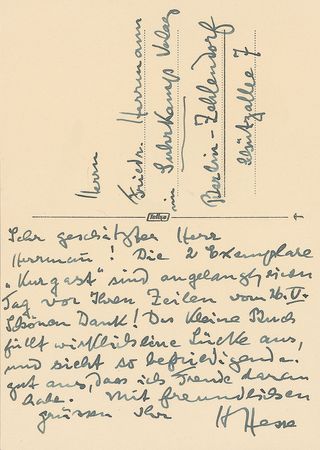 Herrn
Friedr. Herrmann
im Suhrkamp Verlag
Berlin-Zehlendorf
Schützallee 7
Sehr geschätzter Herr
Herrmann! Die 2 Exemplare
„Kurgast" sind angelangt, einen
Tag vor Ihren Zeilen vom 26. V.
Schönen Dank! Das kleine Buch
füllt wirklich eine Lücke aus,
und sieht so befriedigend u.
gut aus, dass ich Freude daran
habe. Mit freundlichen
grüssen Ihr
H Hesse